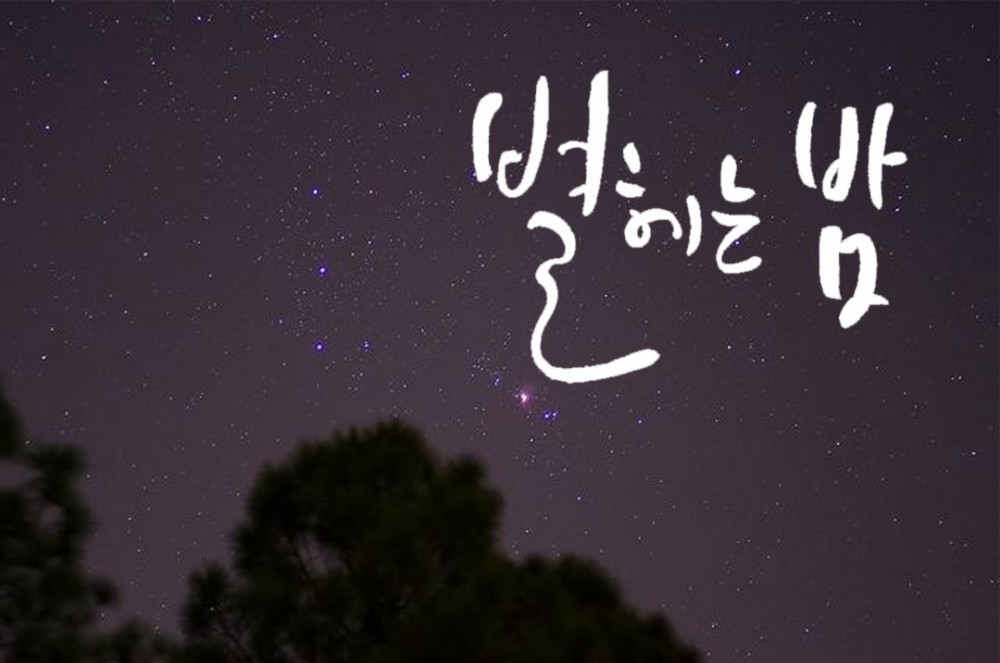 별 헤는 밤